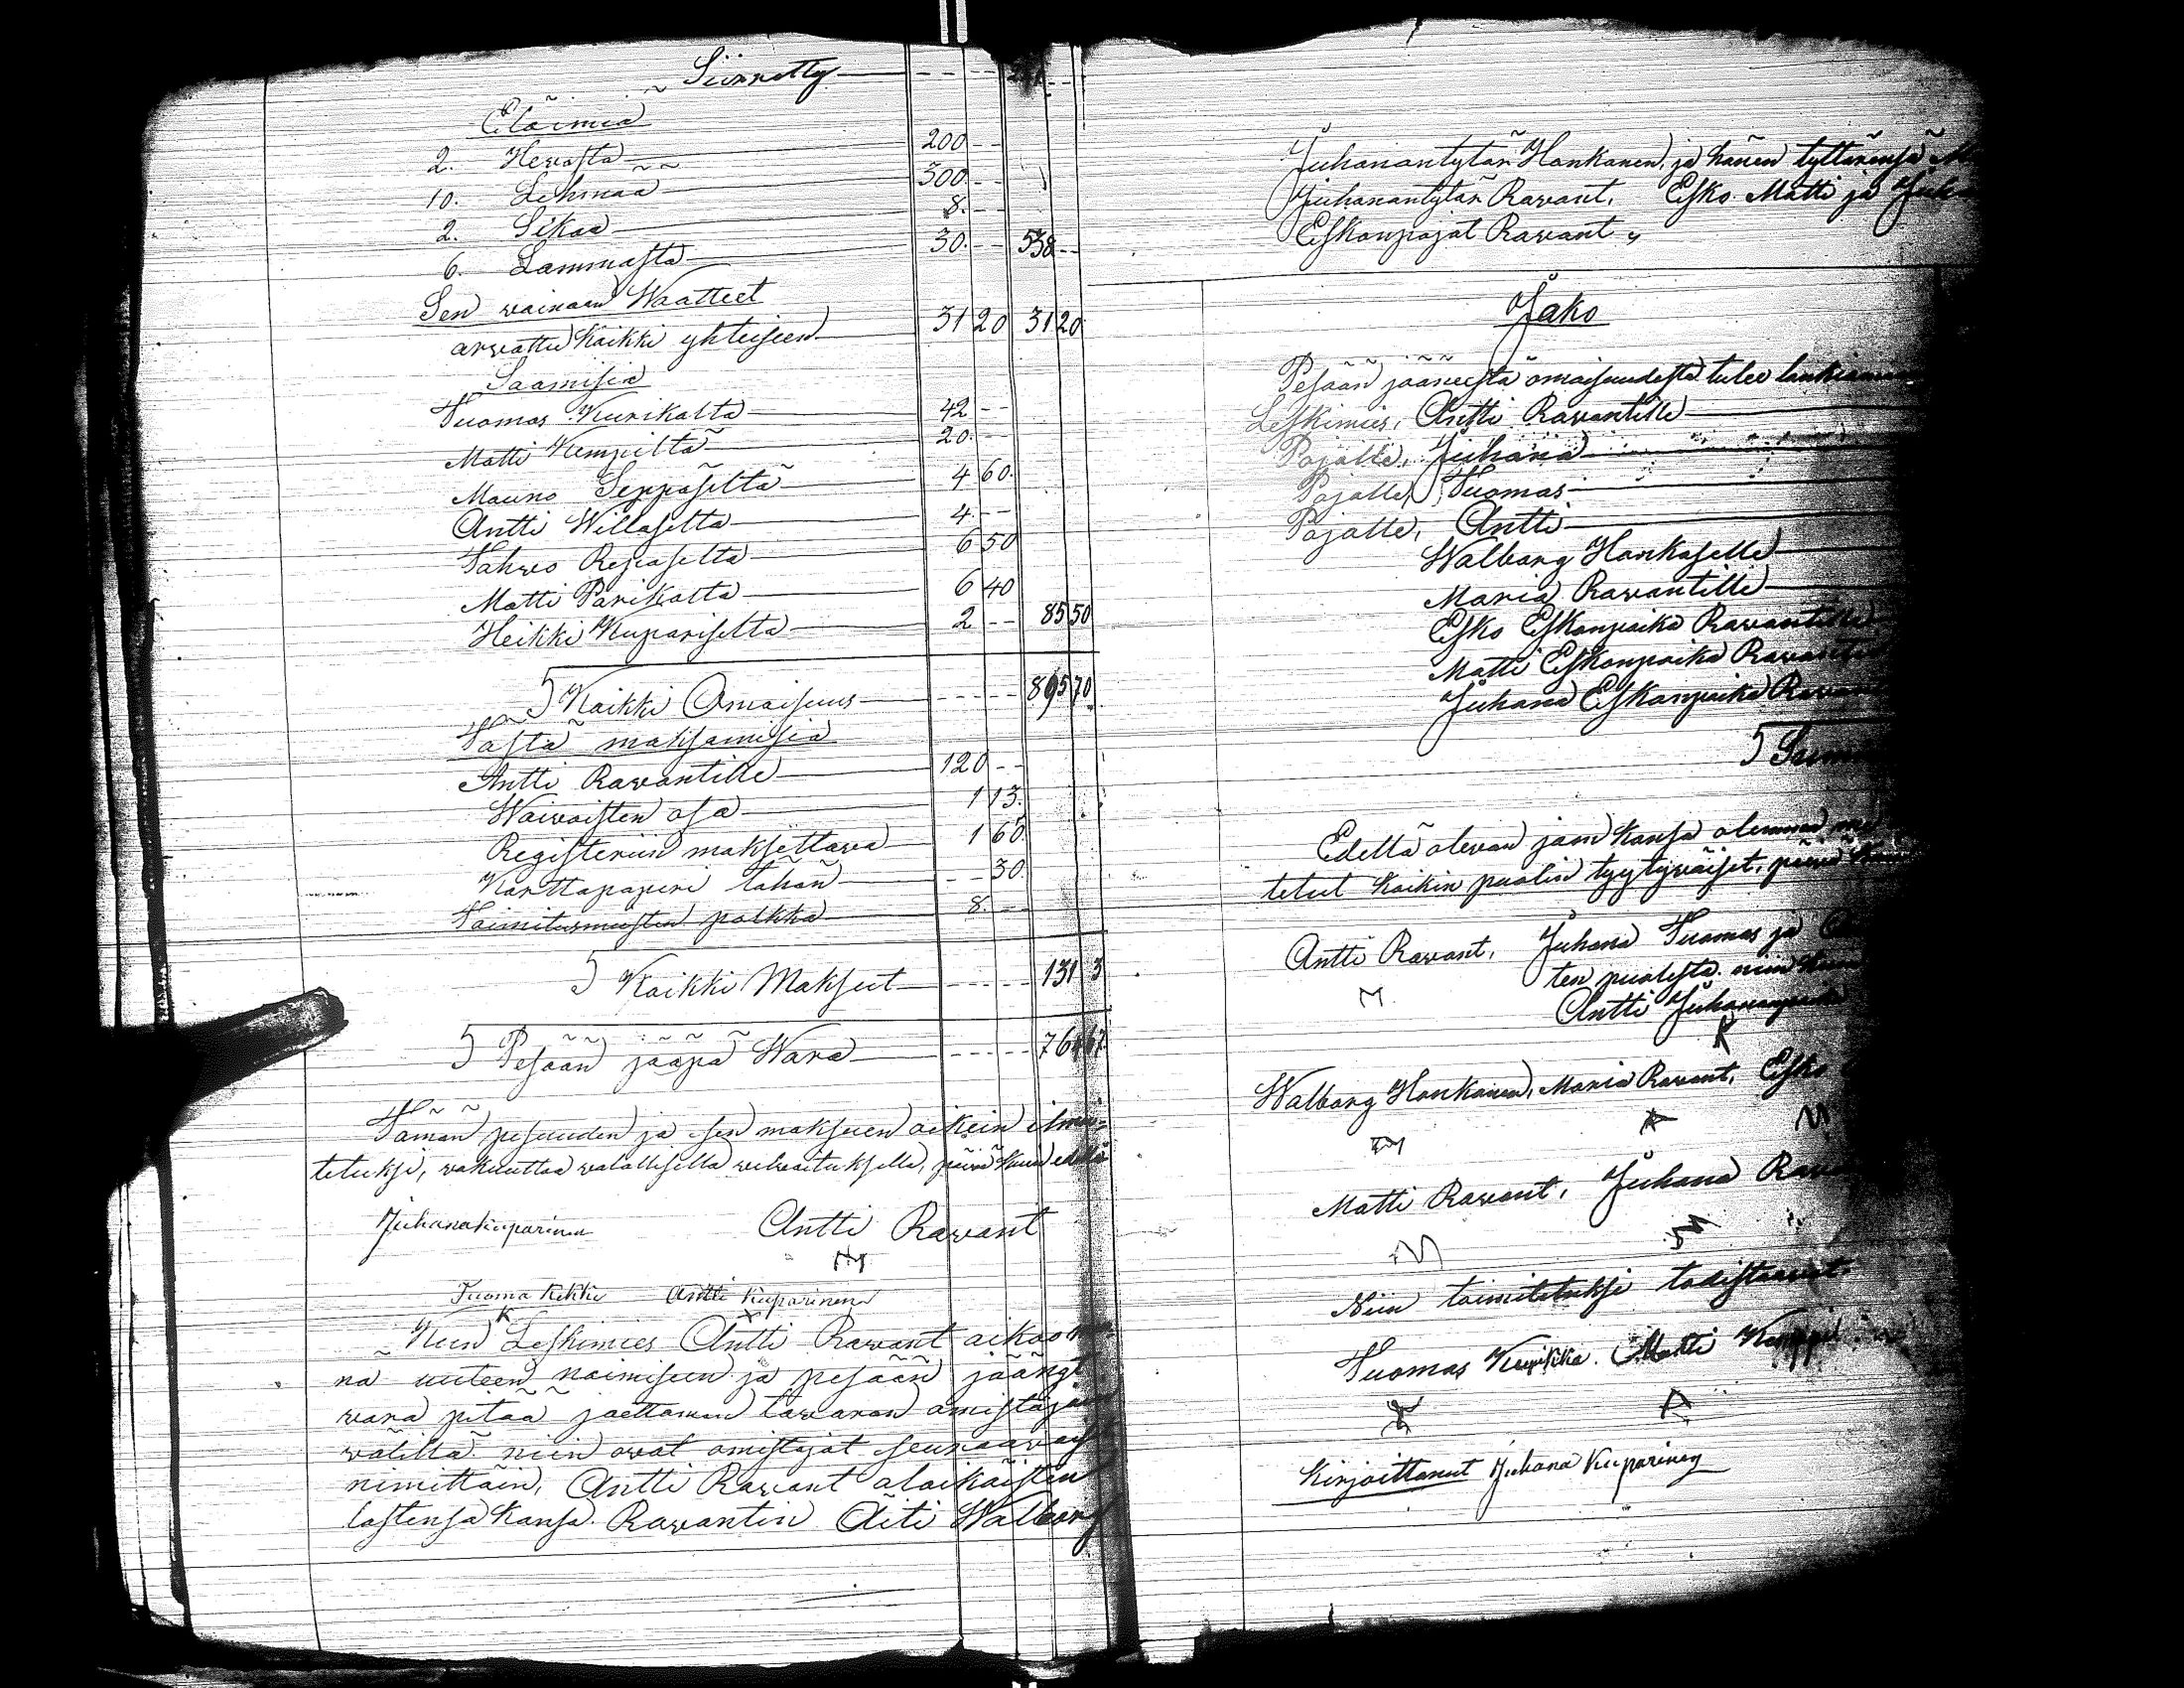 Siirretty
Eläimiä
2. Hewosta 200
10. Lehmää 300
2. Sikaa 8
6. Lammasta 30 538
Sen wainaan Waatteet
arwattu kaikki yhteiseen 31 20 31 20
Saamisia
Tuomas Kurikalta 42
Matti Kempiltä 20
Mauno Seppäseltä 4 60
Antti Willaselta 4
Tahwo Repaselta 6 50
Matti Parikalta 6 40
Heikki Kupariselta 2 85 50
Kaikki Omaisuus 895 70
Tästä maksamisia
Antti Rawantille 120
Waiwaisten osa 1 13
Registeriin maksettawa 1 60
Karttapaperi tähän 30
Toimitusmiesten palkka 8
Kaikki Maksut 131 3
Pesään jääpä Wara 764 67
Tämän pesuuden ja sen maksuen oikein ilmoi=
tetuksi, wakuuttaa walallisella welwoituksella, päiwä kuin edellä
Juhana Kuparinen Antti Rawant
Tuoma Kekki Antti Kuparinen
Kun Leskimies Antti Rawant aikoo
nä uuteen naimiseen ja pesään jäänyt
wara pitää jaettaman tawaran omistajain
wälillä niin owat omistajat seuraawat
nimittäin, Antti Rawant alaikäisten
lastensa kansa Rawantin Äiti Walborg
Juhanantytär Hankanen, ja hänen tyttärensä
Juhanantytär Rawant, Esko Matti ja
Eskonpojat Rawant
Jako
Pesään jääneestä omaisuudesta tulee
Leskimies, Antti Rawantille
Pojalle, Juhana
Pojalle, Tuomas
Pojalle, Antti
Walborg Hankaselle
Maria Rawantille
Esko Eskonpoika Rawantille
Matti Eskonpoika
Juhana Eskonpoika
Edellä olewan jaon kansa olemme
tetut kaikin puolin tyytywäiset, päiwä
Antti Rawant, Juhana Tuomas ja
ten puolesta niin
Antti Juhananpoika
Walborg Hankanen, Maria Rawant, Esko
Matti Rawant, Juhana
Niin toimitetuksi todistaawat
Tuomas Matti
Kirjoittanut Juhana Kuparinen